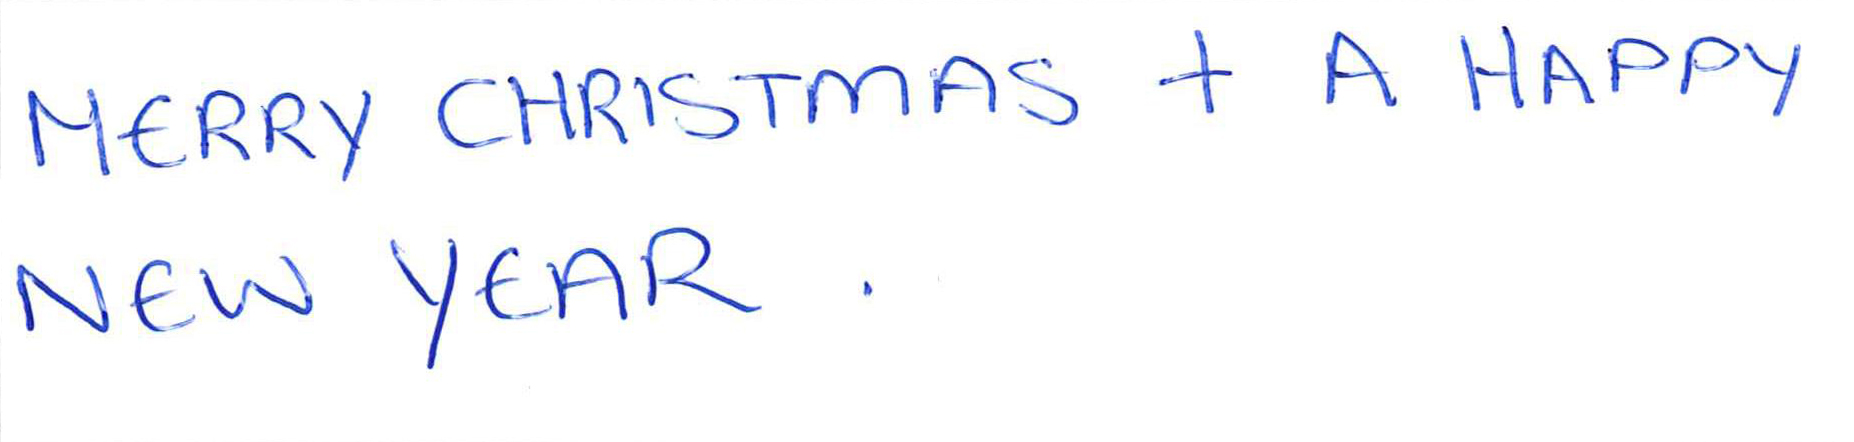 MERRY CHRISTMAS + A HAPPY
NEW YEAR .